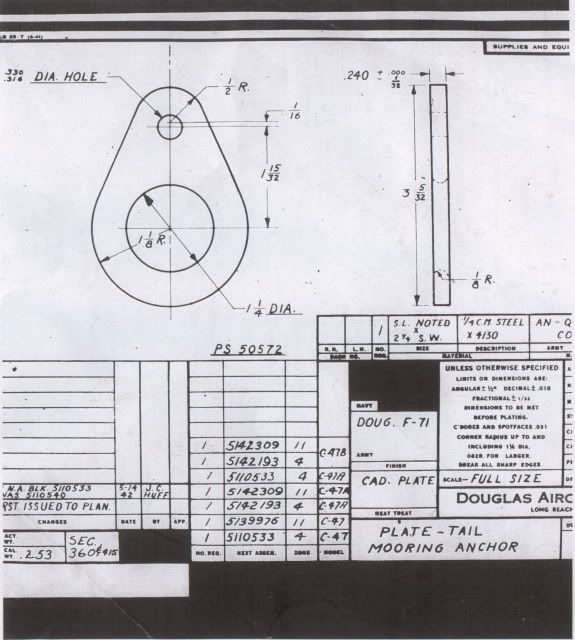 LB 25-T (8-41)
SUPPLIES AND EQUI
.330
.316 DIA. HOLE
1/2 R.
1/16
1 15/32
1 1/8 R.
1 1/4 DIA.
.240 ± .000
1/32
3 5/32
1/8 R.
PS 50572
1 S.L. NOTED 1/4 C.M. STEEL AN-Q
X
2 1/4 S.W. X 4130 CO
R.H. L.H. NO. SIZE DESCRIPTION ARMY
DASH NO. REQ. MATERIAL
UNLESS OTHERWISE SPECIFIED
LIMITS ON DIMENSIONS ARE:
ANGULAR ± ½° DECIMAL ± .010
FRACTIONAL ± 1/32
DIMENSIONS TO BE MET
BEFORE PLATING.
C'BORES AND SPOTFACES .031
CORNER RADIUS UP TO AND
INCLUDING 1⅛ DIA.
.062R. FOR LARGER.
BREAK ALL SHARP EDGES
NAVY
DOUG. F-71
ARMY
FINISH
CAD. PLATE
HEAT TREAT
SCALE- FULL SIZE
DOUGLAS AIRC
LONG BEACH
PLATE-TAIL
MOORING ANCHOR
1 5142309 11
C-47B
1 5142193 4
1 5110533 4 C-47A
1 5142309 11 C-47A
1 5142193 4 C-47A
1 5139976 11 C-47
1 5110533 4 C-47
NO. REQ. NEXT ASSEM. ZONE MODEL
N.A. BLK 5110533 5-14 J.C.
WAS 5110540 42 HUFF
RST ISSUED TO PLAN.
CHANGES DATE BY APP.
ACT.
WT.
CAL.
WT. .253
SEC.
360¢415